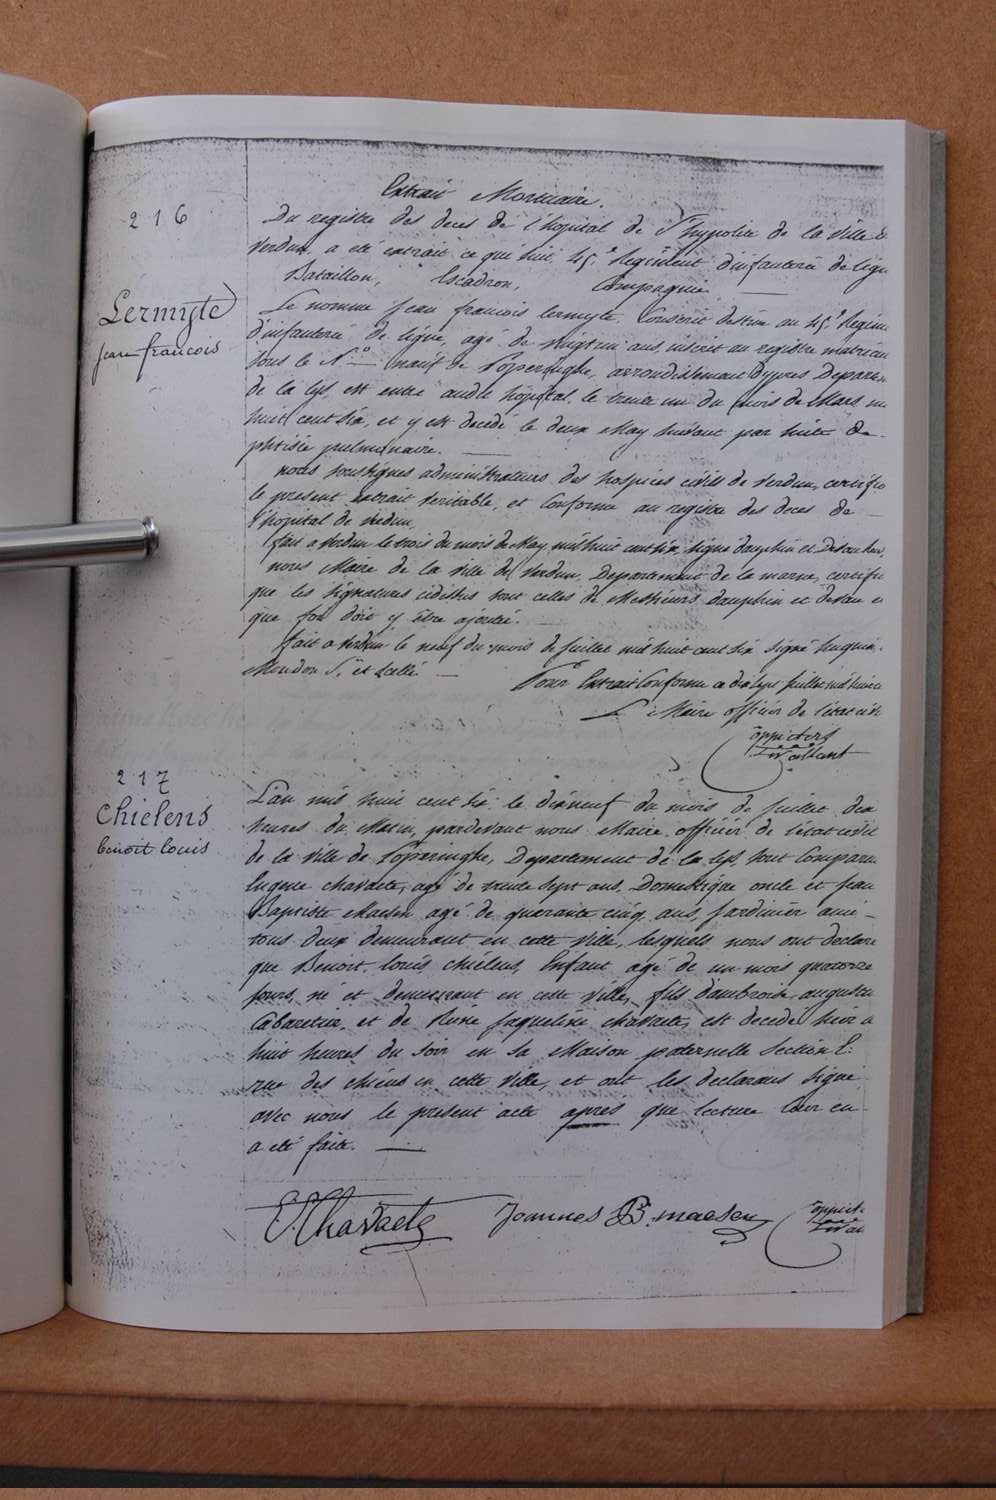 Extrait Mortuaire.
216
Du registre des deces de l'hopital de St hypolite de la ville d
Verdun a été extrait ce que suit, 45e Regiment d'infanterie de lign
Bataillon, Escadron, Compagnie
Lermyte
jean francois
Le nomme Jean francois lermyte, Conscrit destine au 45e Regime
d'infanterie de ligne, agé de vingt un ans, inscrit au registre matricu
sous le No — natif de Poperinghe, arrondissement d'ypres Departem
de la lys, est entre audit hôpital, le trente un du mois de Mars m
huit cent six, et y est decedé le deux May suivant par suite de
phtisie pulmonaire.
nous soussignes administrateurs des hospices civils de Verdun, certifio
le present extrait veritable, et Conforme au registre des deces de
l'hopital de Verdun,
fait a Verdun le trois du mois de May mil huit cent six, signe dauphin et
nous Maire de la ville de Verdun, Departement de la marne, certifie
que les signatures cidessus sont celles de Messieurs dauphin et
que foi doit y être ajoutée.
fait a Verdun le neuf du mois de Juillet mil huit cent six signé
Pour Extrait Conforme ce dix sept Juillet mil huit c
Le Maire officier de l'état civil
217
Chielens
benoit louis
L'an mil huit cent six, le dixneuf du mois de Juillet dix
heures du Matin, pardevant nous Maire officier de l'état civil
de la ville de Poperinghe, Departement de la lys, sont Comparu
Eugene chavaete, agé de trente sept ans, Domestique oncle et Jean
Baptiste Maesen agé de quarante cinq ans, Jardinier ami
tous deux demeurant en cette ville, lesquels nous ont declare
que Benoit louis chielens, Enfant agé de un mois quatorze
jours, né et demeurant en cette ville, fils d'ambroise augustin
Cabaretier, et de Rosie Jaqueline chavaete, est decedé hier a
huit heures du soir en sa Maison paternelle section E.
rue des chiens en cette ville, et ont les declarans signé
avec nous le present acte apres que lecture leur en
a eté faite.
E. Chavaete Joannes B. maesen